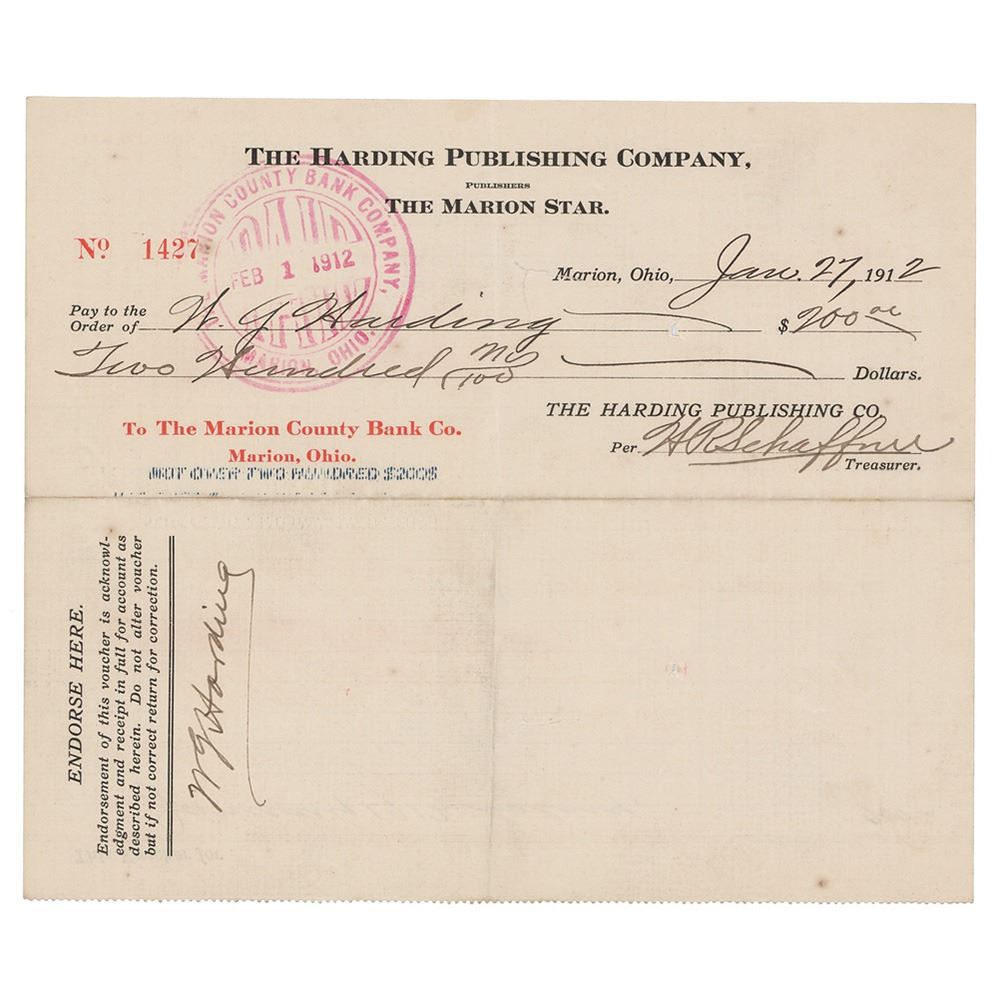 THE HARDING PUBLISHING COMPANY,
PUBLISHERS
THE MARION STAR.
MARION COUNTY BANK COMPANY,
PAID
FEB 1 1912
MARION, OHIO.
No 1427
Marion, Ohio, Jan. 27, 1912
Pay to the
Order of W. G Harding $200 00
Two Hundred no/100 Dollars.
THE HARDING PUBLISHING CO.
To The Marion County Bank Co.
Marion, Ohio.
Per H R Schaffner
Treasurer.
NOT OVER TWO HUNDRED $200$
ENDORSE HERE.
Endorsement of this voucher is acknowl-
edgment and receipt in full for account as
described herein. Do not alter voucher
but if not correct return for correction.
W G Harding